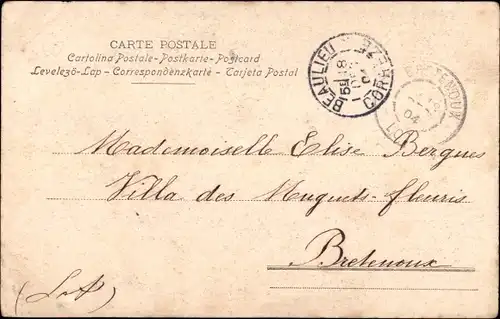 CARTE POSTALE
Cartolina Postale - Postkarte - Postcard
Levelező-Lap - Correspondenzkarte - Tarjeta Postal
BEAULIEU
CORR
BRETENOUX
LOT
04
Mademoiselle Elise Bergues
Villa des Muguets-fleuris
Bretenoux
(Lot)